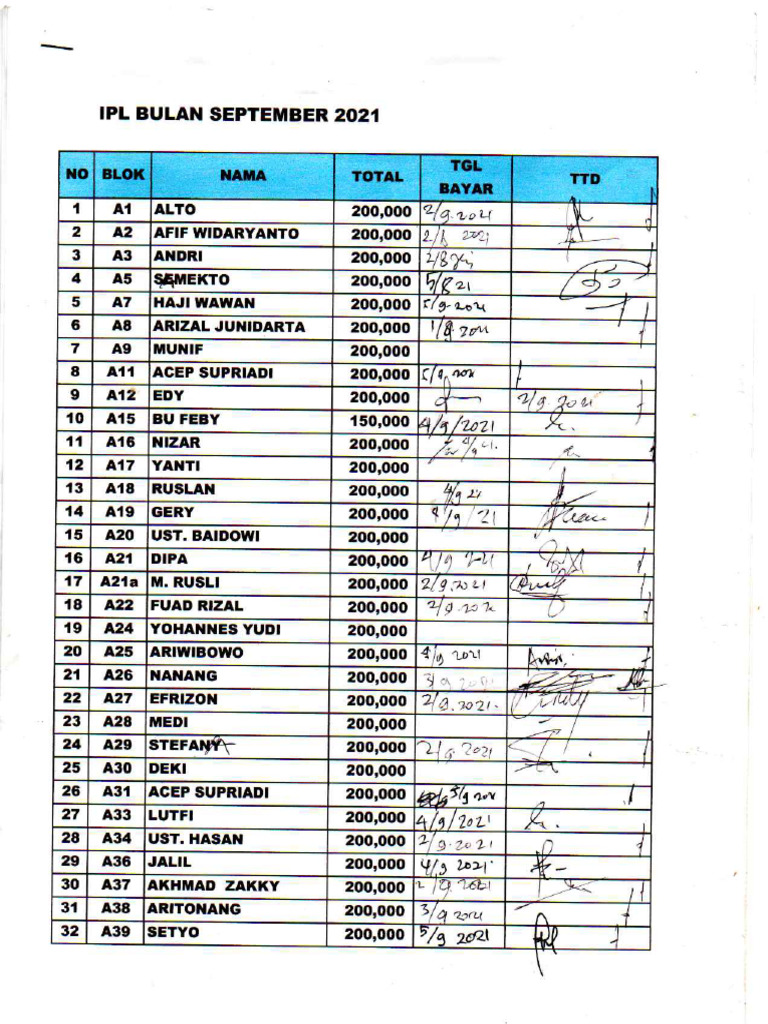 IPL BULAN SEPTEMBER 2021
NO BLOK NAMA TOTAL TGL BAYAR TTD
1 A1 ALTO 200,000 2/9.2021
2 A2 AFIF WIDARYANTO 200,000 2/8 2021
3 A3 ANDRI 200,000 2/8
4 A5 SAMEKTO 200,000 5/8 21
5 A7 HAJI WAWAN 200,000 5/9.2021
6 A8 ARIZAL JUNIDARTA 200,000 1/9.2021
7 A9 MUNIF 200,000
8 A11 ACEP SUPRIADI 200,000 5/9.2021
9 A12 EDY 200,000 2/9.2021
10 A15 BU FEBY 150,000 4/9/2021
11 A16 NIZAR 200,000
12 A17 YANTI 200,000
13 A18 RUSLAN 200,000 4/9 21
14 A19 GERY 200,000 4/9/21
15 A20 UST. BAIDOWI 200,000
16 A21 DIPA 200,000 4/9 2021
17 A21a M. RUSLI 200,000 2/9.2021
18 A22 FUAD RIZAL 200,000 2/9.2021
19 A24 YOHANNES YUDI 200,000
20 A25 ARIWIBOWO 200,000 4/9 2021
21 A26 NANANG 200,000 3/9 2021
22 A27 EFRIZON 200,000 2/9.2021.
23 A28 MEDI 200,000
24 A29 STEFANY 200,000 2/9.2021
25 A30 DEKI 200,000
26 A31 ACEP SUPRIADI 200,000 5/9 2021
27 A33 LUTFI 200,000 4/9/2021
28 A34 UST. HASAN 200,000 2/9.2021
29 A36 JALIL 200,000 4/9 2021
30 A37 AKHMAD ZAKKY 200,000 2/9.2021
31 A38 ARITONANG 200,000 3/9 2021
32 A39 SETYO 200,000 5/9 2021